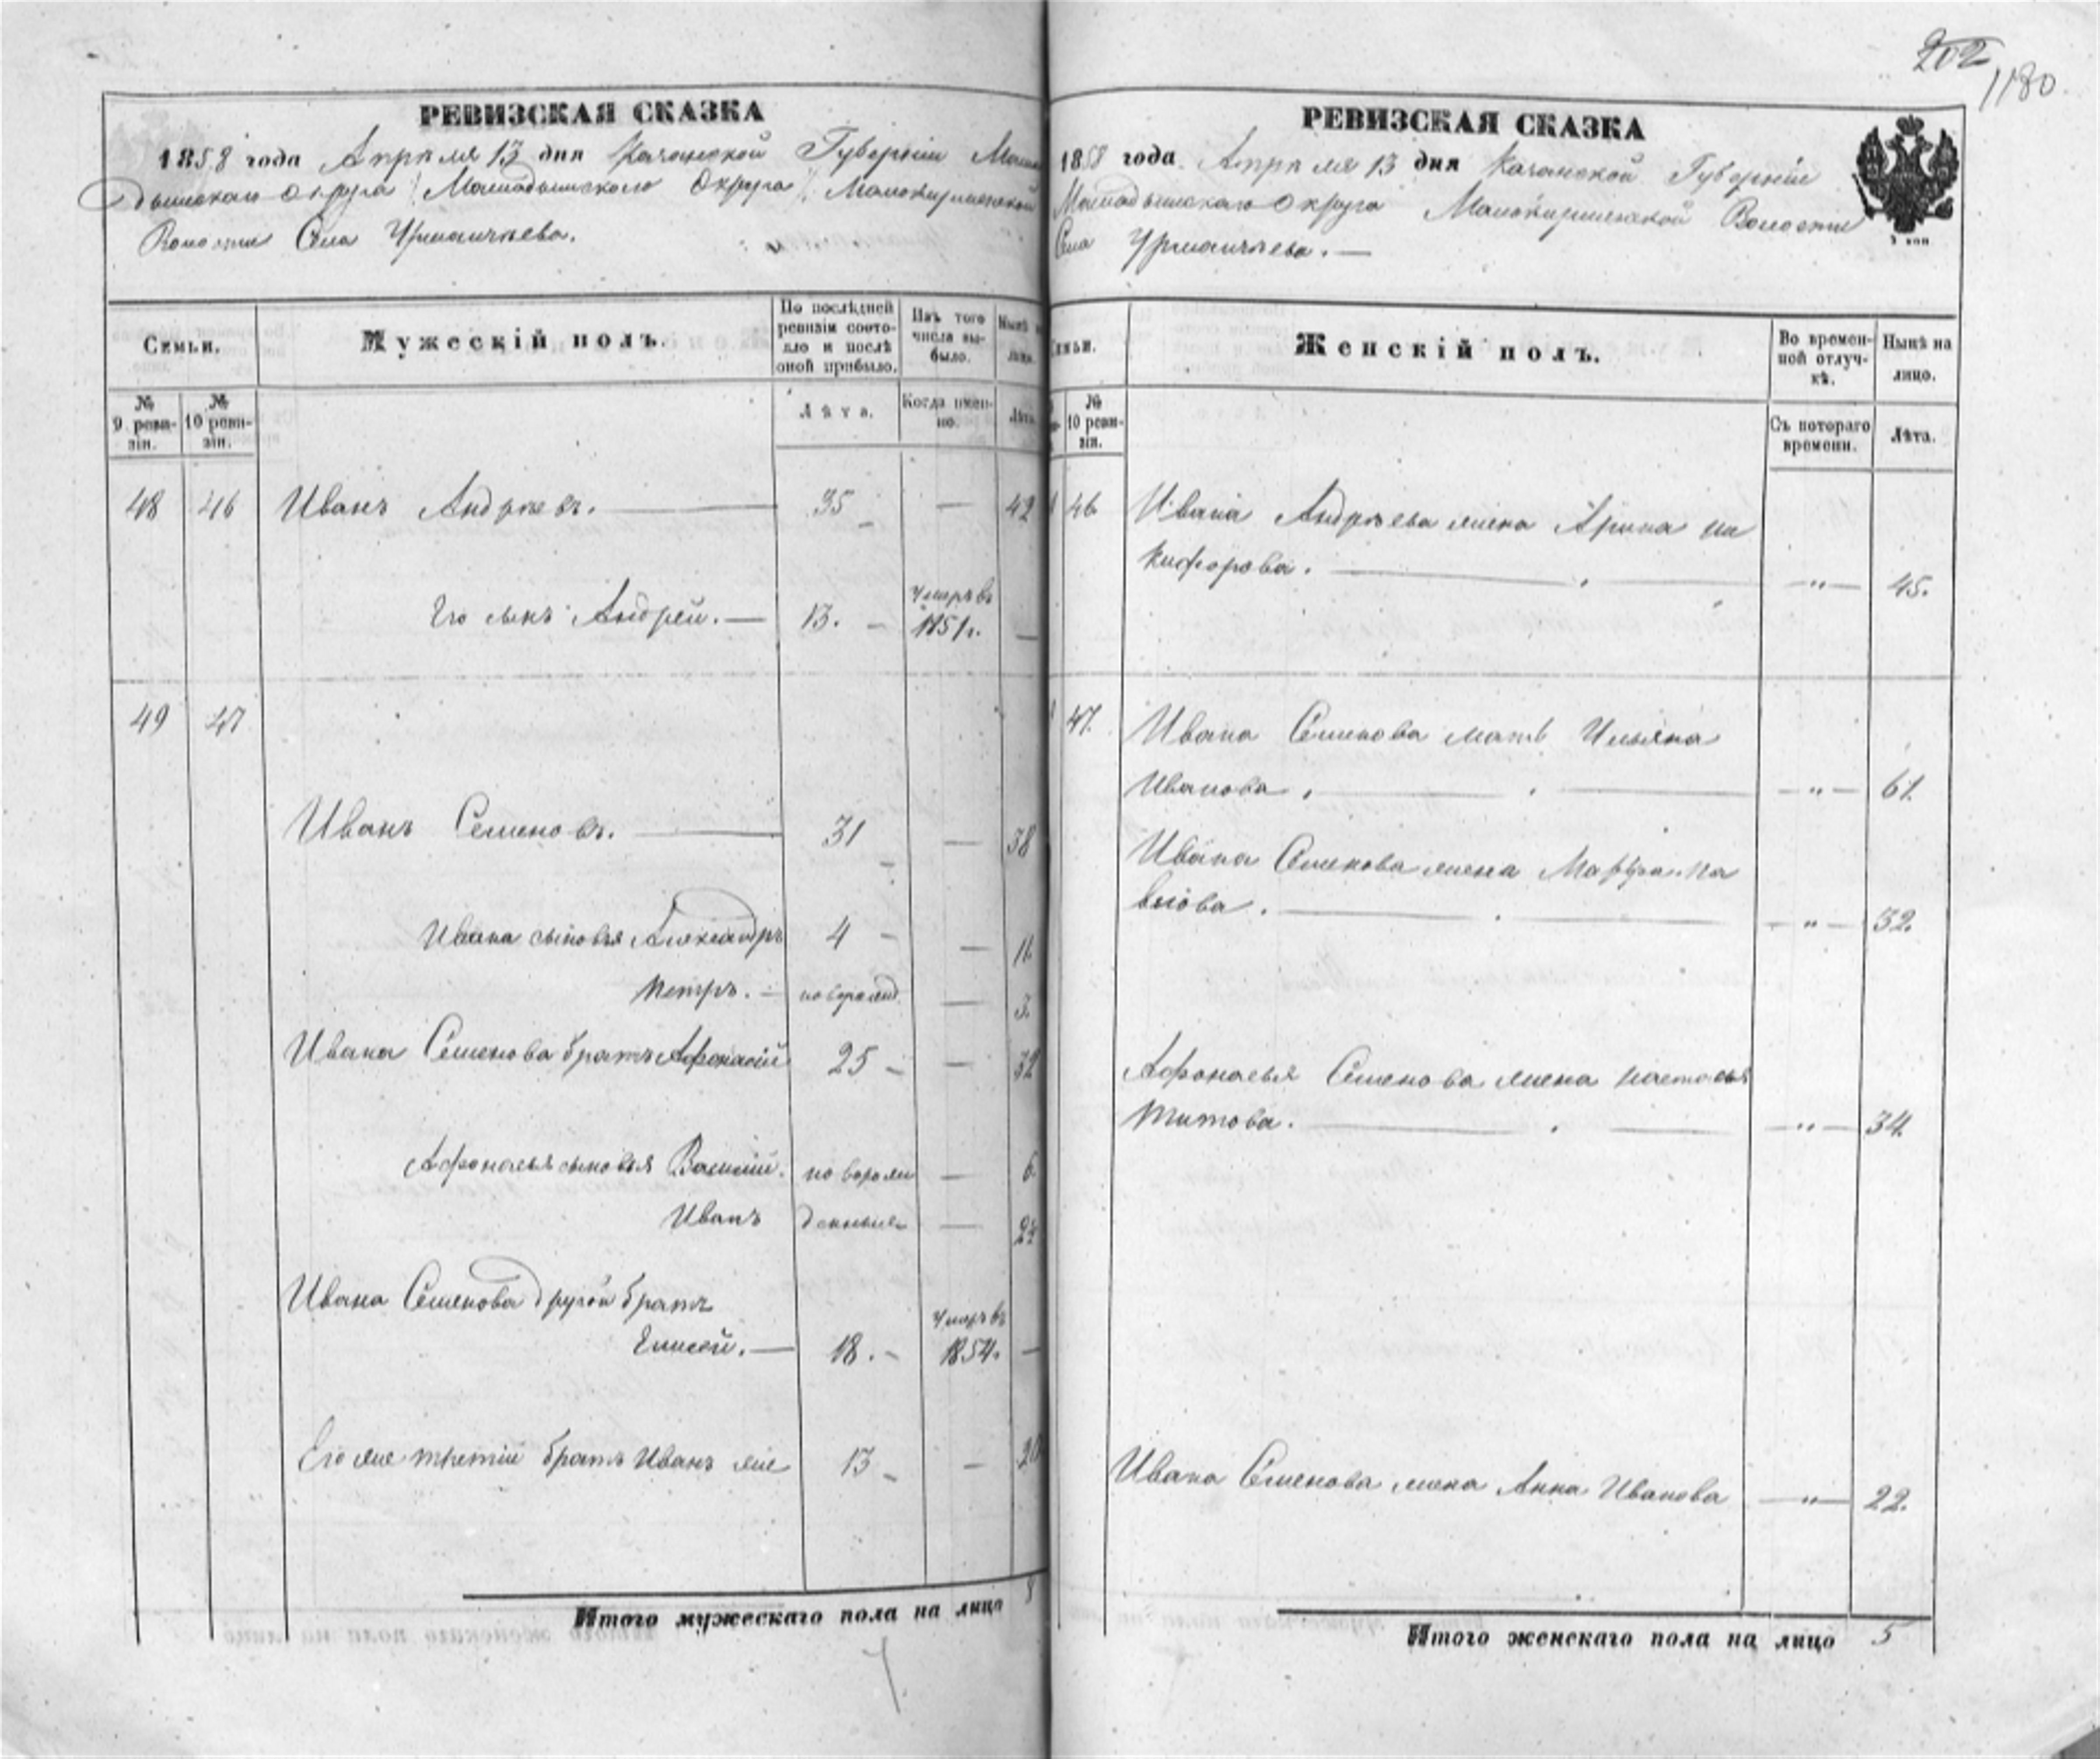 202
1180
РЕВИЗСКАЯ СКАЗКА
1858 года Апрѣля 13 дня Казанской Губерніи Мама
дышскаго округа Мамадышскаго Округа Малокирменской
Волости Села Урманчѣева.
Семьи.
Мужескій полъ.
По послѣдней ревизіи состояло и послѣ оной прибыло.
Изъ того числа выбыло.
Нынѣ на лицо.
№ 9 ревизіи.
№ 10 ревизіи.
Лѣта.
Когда именно.
Лѣта.
48 46 Иванъ Андрѣевъ. 35 — 42
Его сынъ Андрей. — 13. Умеръ въ 1851г. —
49 47
Иванъ Семеновъ. 31 — 38
Ивана сыновья Александръ 4 — 11.
Петръ. — новорожд. — 3.
Ивана Семенова братъ Афонасій 25 — 32
Афонасья сыновья Василій. новорож — 6
Иванъ денные — 2½
Ивана Семенова другой братъ
Елисей. — 18. — Умеръ въ 1854. —
Его же третій братъ Иванъ же 13 — 20
Итого мужескаго пола на лицо 8
РЕВИЗСКАЯ СКАЗКА
1858 года Апрѣля 13 дня Казанской Губерніи
Мамадышскаго Округа Малокирменской Волости
Села Урманчѣева. —
Семьи.
Женскій полъ.
Во временной отлучкѣ.
Нынѣ на лицо.
№ 10 ревизіи.
Съ котораго времени.
Лѣта.
46 Ивана Андрѣева жена Арина Ни
кифорова. — " — 45.
47. Ивана Семенова мать Ульяна
Иванова. — " — 61.
Ивана Семенова жена Марфа Па
влова. — " — 32.
Афонасья Семенова жена Настасья
Титова. — " — 34.
Ивана Семенова жена Анна Иванова — " — 22.
Итого женскаго пола на лицо 5